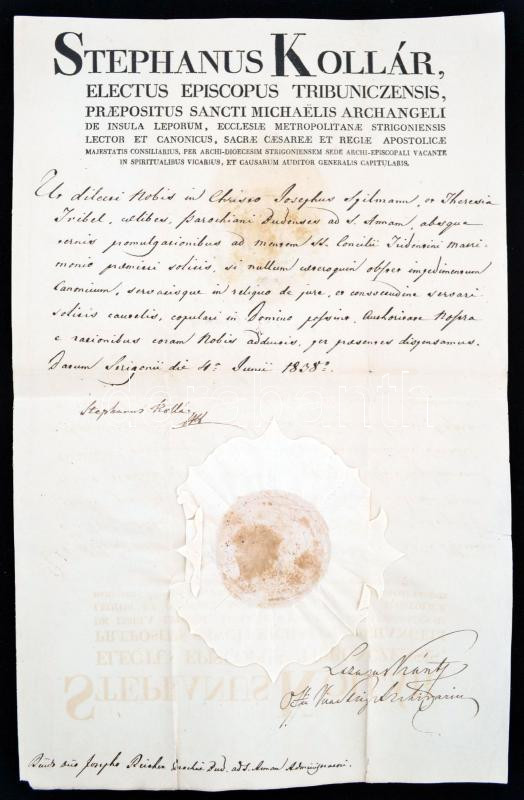 STEPHANUS KOLLÁR,
ELECTUS EPISCOPUS TRIBUNICZENSIS,
PRÆPOSITUS SANCTI MICHAËLIS ARCHANGELI
DE INSULA LEPORUM, ECCLESIÆ METROPOLITANÆ STRIGONIENSIS
LECTOR ET CANONICUS, SACRÆ CÆSAREÆ ET REGIÆ APOSTOLICÆ
MAJESTATIS CONSILIARIUS, PER ARCHI-DIOECESIM STRIGONIENSEM SEDE ARCHI-EPISCOPALI VACANTE
IN SPIRITUALIBUS VICARIUS, ET CAUSARUM AUDITOR GENERALIS CAPITULARIS.
Ut dilecti Nobis in Christo Josephus Szilmam, et Theresia
Tribel, cælibes, Parochiani Budenses ad S. Annam, absque
ternis promulgationibus ad mentem SS. Concilii Tridentini matri-
monio præmitti solitis, si nullum cæteroquin obstet impedimentum
Canonicum, servatisque in reliquo de jure, et consvetudine servari
solitis cautelis, copulari in Domino possint, Authoritate Nostra
e rationibus coram Nobis adductis, per præsentes dispensamus.
Datum Strigonii die 4ª Junii 1838º.
Stephanus Kollár
Lazarus Krántz
Josepho
ad S. Annam Administratori.